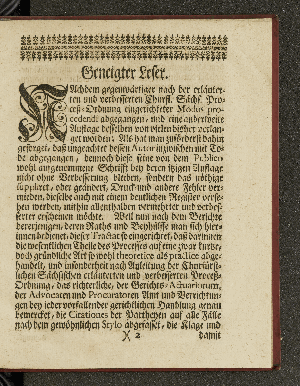 Geneigter Leser.
NAchdem gegenwärtiger nach der erläuter-
ten und verbesserten Churfl. Sächs. Pro-
ceß-Ordnung eingerichteter Modus pro-
cedendi abgegangen, und eine anderweite
Auflage desselben von vielen bißher verlan-
get worden: Als hat man zuförderst dahin
gesorget, daß ungeachtet dessen Autor inzwischen mit To-
de abgegangen, dennoch diese seine von dem Publico
wohl aufgenommene Schrifft bey deren itzigen Auflage
nicht ohne Verbesserung bleiben, sondern das nöthige
suppliret, oder geändert, Druck- und andere Fehler ver-
mieden, dieselbe auch mit einem deutlichen Register verse-
hen werden, mithin allenthalben vermehrter und verbes-
serter erscheinen möchte. Weil nun nach dem Berichte
dererjenigen, deren Raths und Beyhülffe man sich hier-
innen bedienet, dieser Tractat so eingerichtet, daß darinnen
die wesentlichen Theile des Processes auf eine zwar kurtze,
doch gründliche Art so wohl theoretice als practice abge-
handelt, und insonderheit nach Anleitung der Churfürst-
lichen Sächsischen erläuterten und verbesserten Proceß-
Ordnung, das richterliche, der Gerichts-Actuariorum,
der Advocaten und Procuratoren Amt und Verrichtun-
gen bey jeder vorfallender gerichtlichen Handlung genau
bemercket, die Citationes der Partheyen auf alle Fälle
nach dem gewöhnlichen Stylo abgefasset, die Klage und
)( 2 damit